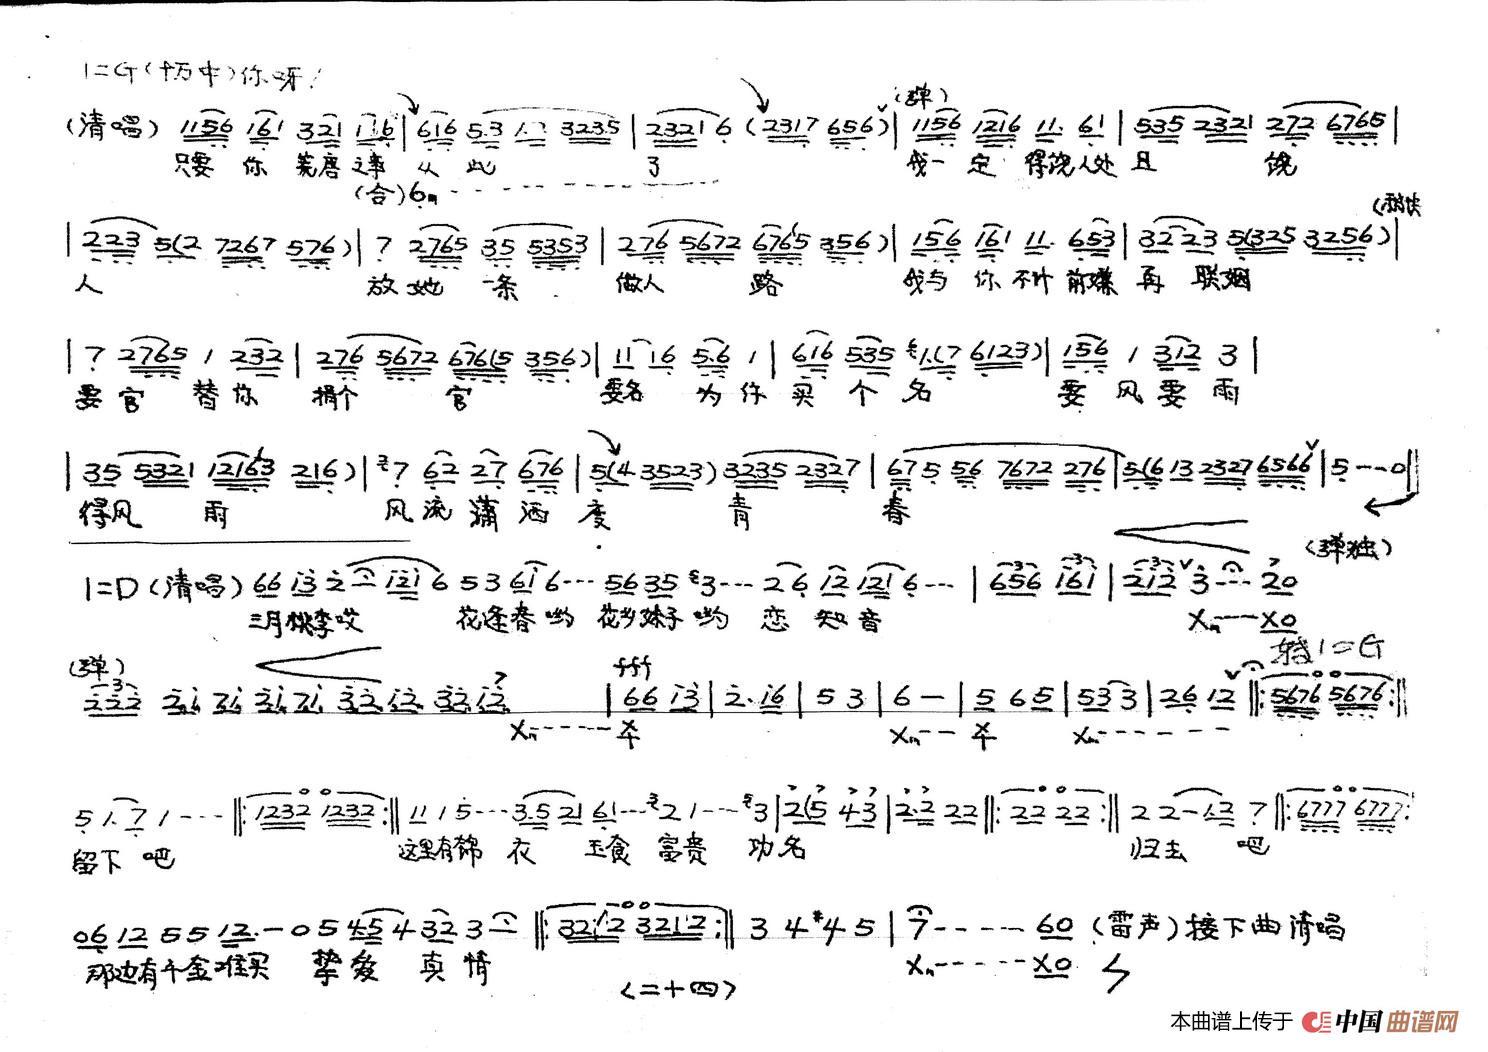 1=G(十万中)你呀!
(弹)
(清唱) 1156 161 321 116 | 616 5.3 1.2 3235 | 2321 6 (2317 656) | 1156 1216 11. 61 | 535 2321 272 6765 |
只要 你 荒唐 之事 从 此 了 我一 定 得饶人处 且 饶
(合)6
| 223 5(2 7267 576) | 7 2765 35 5353 | 276 5672 6765 356) | 156 161 11. 653 | 3223 5(325 3256) |
人 放 她 一条 做人 路 我与 你 不计 前嫌 再 联姻
| 7 2765 1 232 | 276 5672 676(5 356) | 11 16 5.6 1 | 616 535 1.(7 6123) | 156 1 312 3 |
要 官 替 你 捐个 官 要名 为 你 买 个 名 要 风 要 雨
| 35 5321 12163 216) | 7 62 27 676 | 5(4 3523) 3235 2327 | 675 56 7672 276 | 5(6 13 2327 6566 | 5 -- 0 ||
得风 雨 风 流 潇 洒 度 青 春
(弹独)
1=D (清唱) 66 i3 2 - i2i 6 5 3 6i 6--- 56 35 3--- 26 12 121 6--- | 656 161 | 212 3--- 20
三月桃李哎 花逢春哟 花乡妹子 哟 恋 知 音 X---X0
转1=G
(弹) fff
222 2i 7i 2i 7i 32 i2 32 i2 | 66 i3 | 2. i6 | 5 3 | 6 - | 5 65 | 533 | 26 12 ||: 5676 5676 :||
X------X X--- X X-------
5 1.7 1 --- ||: 1232 1232 :|| 11 15--- 3.5 21 61--- 21--- 3 | 2(5 43 | 2.2 22 ||: 22 22 :|| 22-1.2 7 ||: 6777 6777 :
留下 吧 这里有锦 衣 玉食 富贵 功名 归去 吧
06 12 55 12.- 05 45 4 32 3 - ||: 3212 3212 :|| 3 4 #4 5 | 7---- 60 (雷声)接下曲清唱
那边有千金难买 挚爱 真 情 X-----X0
〈二十四〉
本曲谱上传于 中国曲谱网